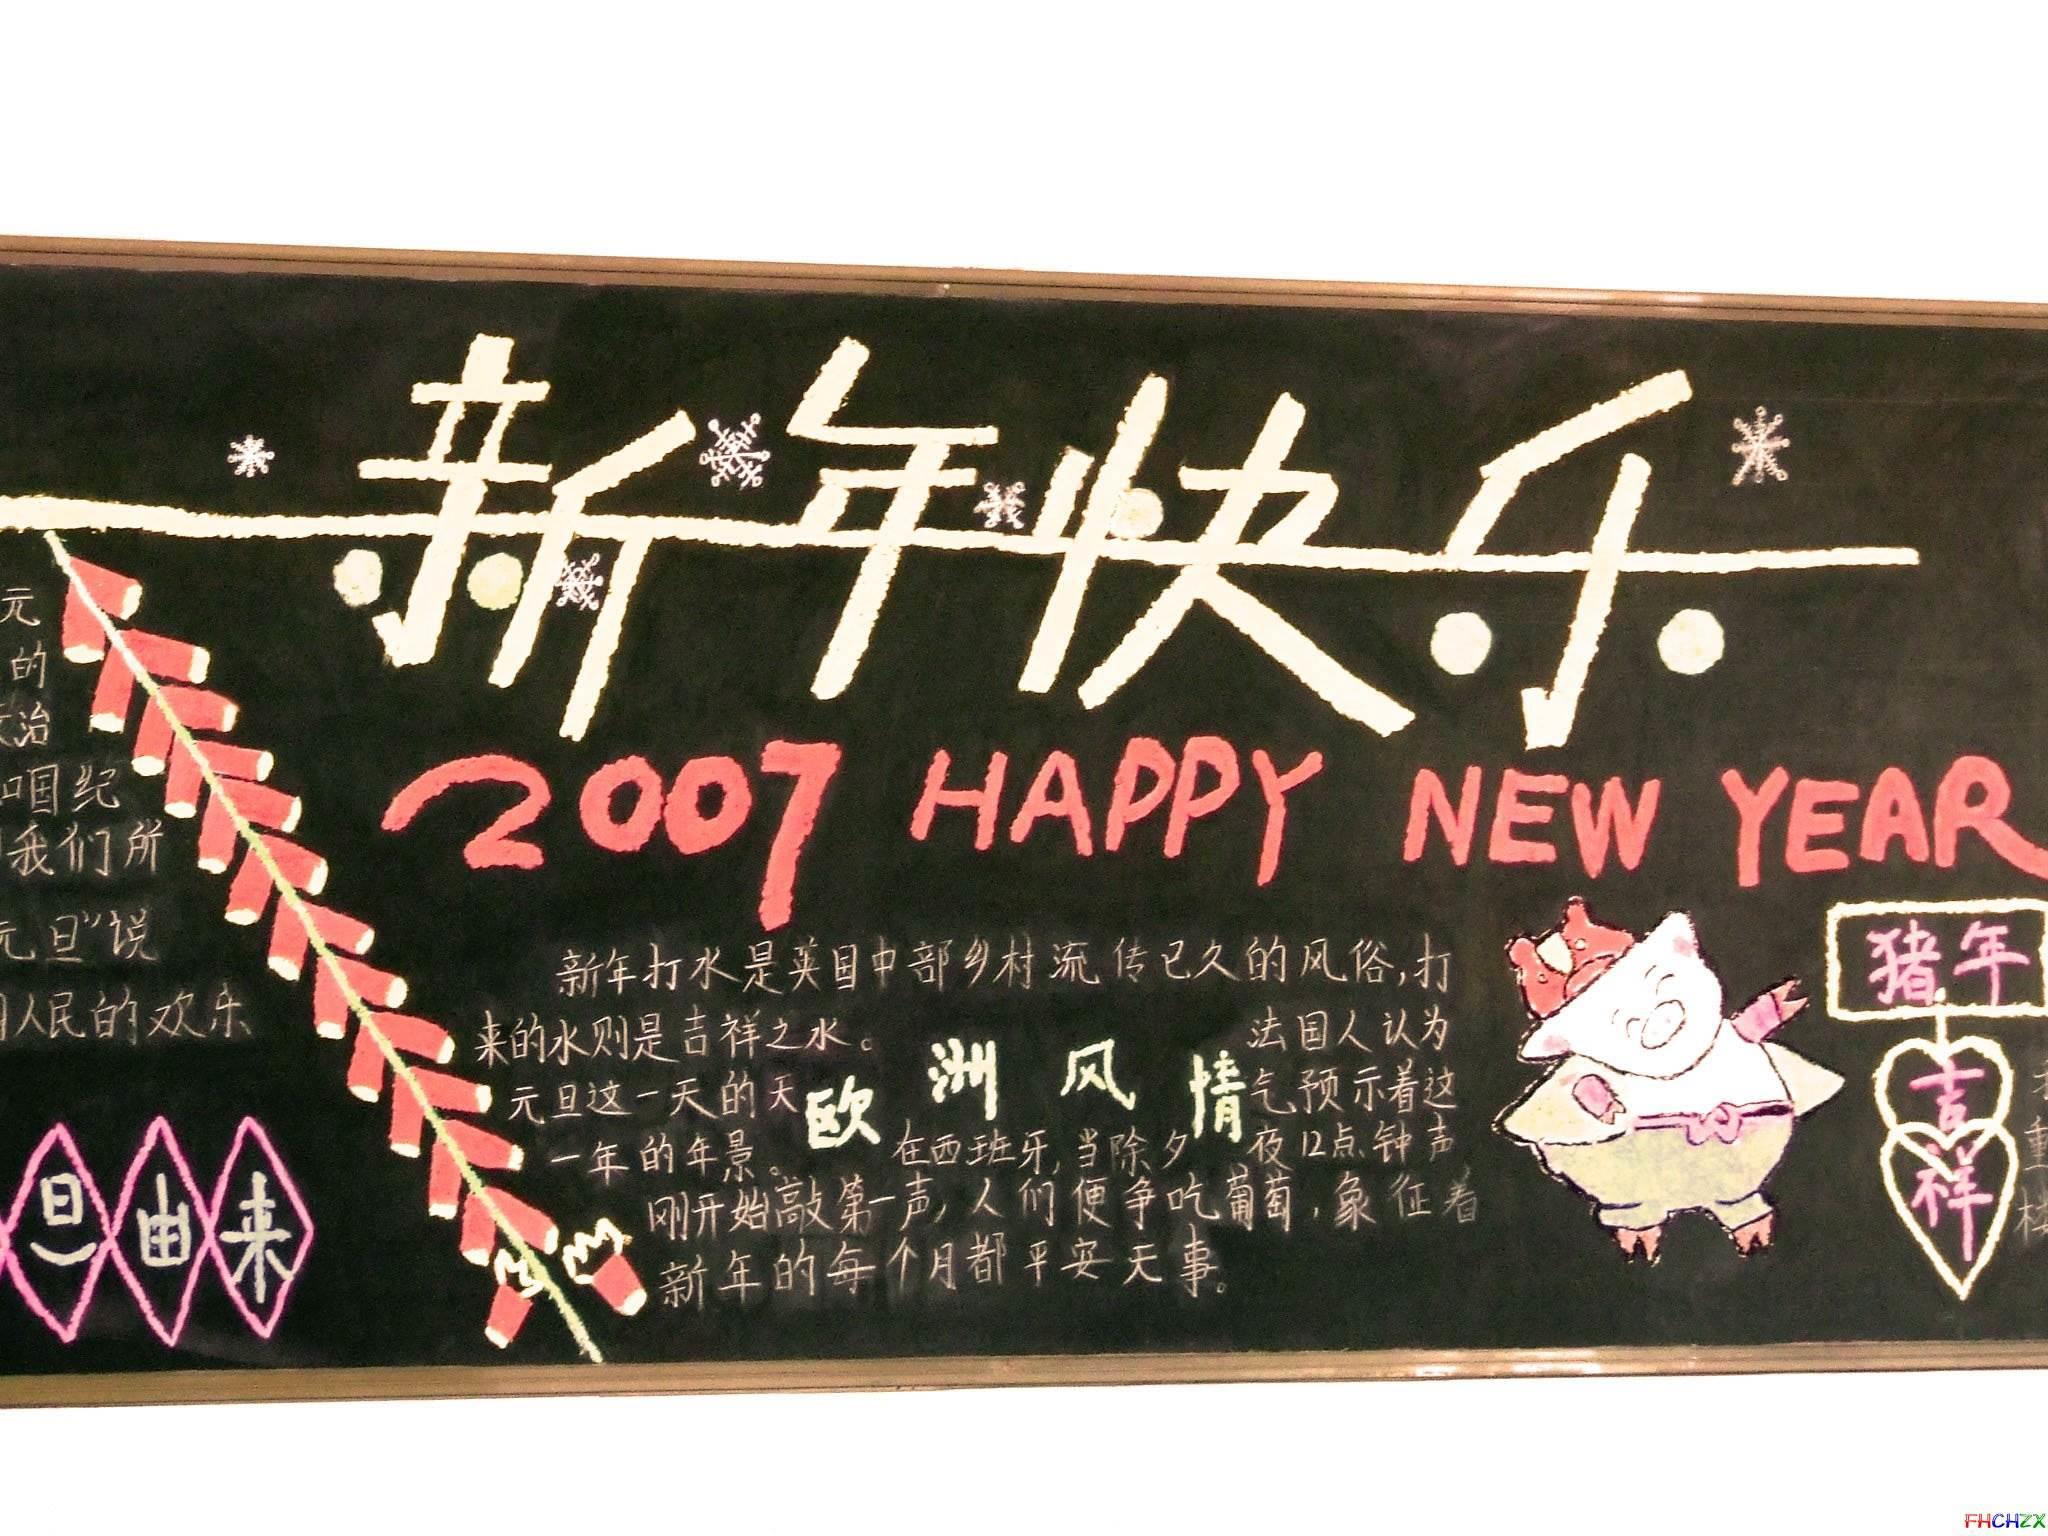 新年快乐
2007 HAPPY NEW YEAR
元
的
治
国纪
我们所
元旦"说
人民的欢乐
旦由来
新年打水是英国中部乡村流传已久的风俗,打
来的水则是吉祥之水。
法国人认为
元旦这一天的天
气预示着这
一年的年景。
欧洲风情
在西班牙,当除夕夜12点钟声
刚开始敲第一声,人们便争吃葡萄,象征着
新年的每个月都平安无事。
猪年
吉
祥
重
FHCHZX